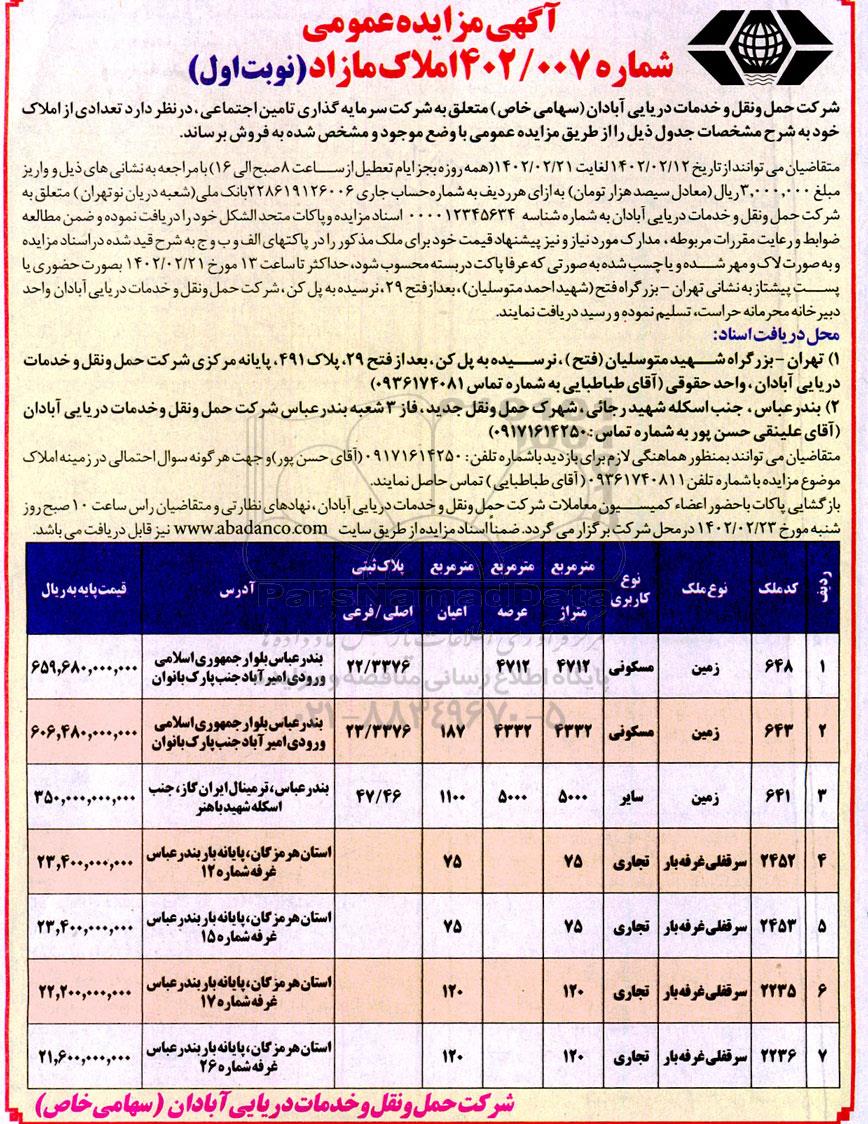 آگهی مزایده عمومی
شماره ۱۴۰۲/۰۰۷ املاک مازاد (نوبت اول)
شرکت حمل و نقل و خدمات دریایی آبادان (سهامی خاص) متعلق به شرکت سرمایه گذاری تامین اجتماعی، در نظر دارد تعدادی از املاک
خود به شرح مشخصات جدول ذیل را از طریق مزایده عمومی با وضع موجود و مشخص شده به فروش برساند.
متقاضیان می توانند از تاریخ ۱۴۰۲/۰۲/۱۲ لغایت ۱۴۰۲/۰۲/۲۱ (همه روزه بجز ایام تعطیل از ساعت ۸ صبح الی ۱۶) با مراجعه به نشانی های ذیل و واریز
مبلغ ۳,۰۰۰,۰۰۰ ریال (معادل سیصد هزار تومان) به ازای هر ردیف به شماره حساب جاری ۲۲۸۶۱۹۱۲۶۰۰۶ بانک ملی (شعبه دریان نو تهران) متعلق به
شرکت حمل و نقل و خدمات دریایی آبادان به شماره شناسه ۰۰۰۰۱۲۳۴۵۶۳۴ اسناد مزایده و پاکات متحد الشکل خود را دریافت نموده و ضمن مطالعه
ضوابط و رعایت مقررات مربوطه، مدارک مورد نیاز و نیز پیشنهاد قیمت خود برای ملک مذکور را در پاکتهای الف و ب و ج به شرح قید شده در اسناد مزایده
و به صورت لاک و مهر شده و یا چسب شده به صورتی که عرفا پاکت در بسته محسوب شود، حداکثر تا ساعت ۱۳ مورخ ۱۴۰۲/۰۲/۲۱ بصورت حضوری یا
پست پیشتاز به نشانی تهران - بزرگراه فتح (شهید احمد متوسلیان)، بعد از فتح ۲۹، نرسیده به پل کن، شرکت حمل و نقل و خدمات دریایی آبادان واحد
دبیرخانه محرمانه حراست، تسلیم نموده و رسید دریافت نمایند.
محل دریافت اسناد:
۱) تهران - بزرگراه شهید متوسلیان (فتح)، نرسیده به پل کن، بعد از فتح ۲۹، پلاک ۴۹۱، پایانه مرکزی شرکت حمل و نقل و خدمات
دریایی آبادان، واحد حقوقی (آقای طباطبایی به شماره تماس ۰۹۳۶۱۷۴۰۸۱)
۲) بندرعباس، جنب اسکله شهید رجائی، شهرک حمل و نقل جدید، فاز ۳ شعبه بندرعباس شرکت حمل و نقل و خدمات دریایی آبادان
(آقای علینقی حسن پور به شماره تماس: ۰۹۱۷۱۶۱۴۲۵۰)
متقاضیان می توانند بمنظور هماهنگی لازم برای بازدید با شماره تلفن: ۰۹۱۷۱۶۱۴۲۵۰ (آقای حسن پور) و جهت هر گونه سوال احتمالی در زمینه املاک
موضوع مزایده با شماره تلفن ۰۹۳۶۱۷۴۰۸۱۱ (آقای طباطبایی) تماس حاصل نمایند.
بازگشایی پاکات با حضور اعضاء کمیسیون معاملات شرکت حمل و نقل و خدمات دریایی آبادان، نهادهای نظارتی و متقاضیان راس ساعت ۱۰ صبح روز
شنبه مورخ ۱۴۰۲/۰۲/۲۳ در محل شرکت برگزار می گردد. ضمناً اسناد مزایده از طریق سایت www.abadanco.com نیز قابل دریافت می باشد.
ردیف | کد ملک | نوع ملک | نوع کاربری | مترمربع متراژ | مترمربع عرصه | مترمربع اعیان | پلاک ثبتی اصلی/فرعی | آدرس | قیمت پایه به ریال
۱ | ۶۴۸ | زمین | مسکونی | ۴۷۱۲ | ۴۷۱۲ | | ۲۲/۳۳۷۶ | بندرعباس بلوار جمهوری اسلامی ورودی امیرآباد جنب پارک بانوان | ۶۵۹,۶۸۰,۰۰۰,۰۰۰
۲ | ۶۴۳ | زمین | مسکونی | ۴۳۳۲ | ۴۳۳۲ | ۱۸۷ | ۲۳/۳۳۷۶ | بندرعباس بلوار جمهوری اسلامی ورودی امیرآباد جنب پارک بانوان | ۶۰۶,۴۸۰,۰۰۰,۰۰۰
۳ | ۶۴۱ | زمین | سایر | ۵۰۰۰ | ۵۰۰۰ | ۱۱۰۰ | ۴۷/۴۶ | بندرعباس، ترمینال ایران گاز، جنب اسکله شهید باهنر | ۳۵۰,۰۰۰,۰۰۰,۰۰۰
۴ | ۲۴۵۲ | سرقفلی غرفه بار | تجاری | ۷۵ | | ۷۵ | | استان هرمزگان، پایانه بار بندرعباس غرفه شماره ۱۲ | ۲۳,۴۰۰,۰۰۰,۰۰۰
۵ | ۲۴۵۳ | سرقفلی غرفه بار | تجاری | ۷۵ | | ۷۵ | | استان هرمزگان، پایانه بار بندرعباس غرفه شماره ۱۵ | ۲۳,۴۰۰,۰۰۰,۰۰۰
۶ | ۲۲۳۵ | سرقفلی غرفه بار | تجاری | ۱۲۰ | | ۱۲۰ | | استان هرمزگان، پایانه بار بندرعباس غرفه شماره ۱۷ | ۲۲,۲۰۰,۰۰۰,۰۰۰
۷ | ۲۲۳۶ | سرقفلی غرفه بار | تجاری | ۱۲۰ | | ۱۲۰ | | استان هرمزگان، پایانه بار بندرعباس غرفه شماره ۲۶ | ۲۱,۶۰۰,۰۰۰,۰۰۰
شرکت حمل و نقل و خدمات دریایی آبادان (سهامی خاص)
ParsNamadData
پایگاه اطلاع رسانی مناقصه و مزایده
۰۲۱-۸۸۳۴۹۶۷۰-۵